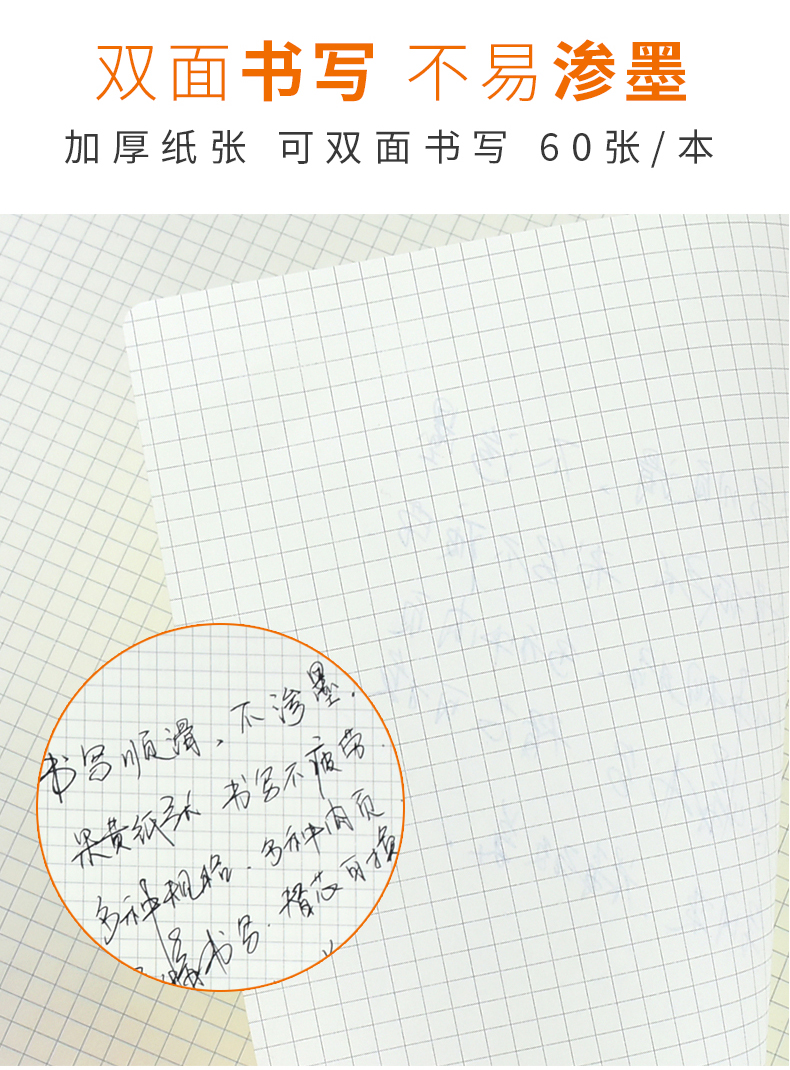 双面书写 不易渗墨
加厚纸张 可双面书写 60张/本
书写顺滑，不渗墨.
纸张 书写不疲劳.
多种规格.多种内页
书写.替芯可换